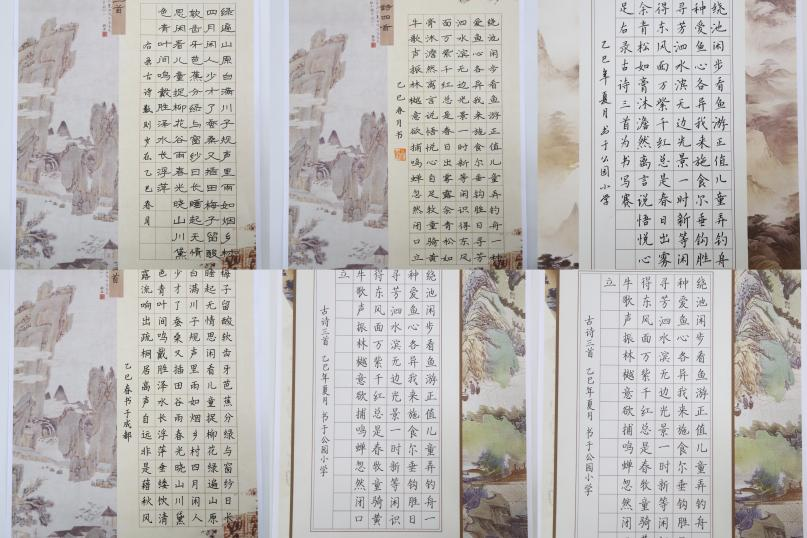 首
绿遍山原白满川子规声里雨如烟乡村
四月闲人少才了蚕桑又插田梅子留酸
软齿牙芭蕉分绿与窗纱日长睡起无情
思闲看儿童捉柳花谷雨春光晓山川黛
色青叶间鸣戴胜泽水长浮萍
右录古诗数则岁在乙巳春月
诗四首
绕池闲步看鱼游正值儿童弄钓舟一种
爱鱼心各异我来施食尔垂钩胜日寻芳
泗水滨无边光景一时新等闲识得东风
面万紫千红总是春日出雾露余青松如
膏沐澹然离言说悟悦心自足牧童骑黄
牛歌声振林樾意欲捕鸣蝉忽然闭口立
乙巳春月书
绕池闲步看鱼游正值儿童弄钓舟
种爱鱼心各异我来施食尔垂钩胜
寻芳泗水滨无边光景一时新等闲
得东风面万紫千红总是春日出雾
余青松如膏沐澹然离言说悟悦心
足右录古诗三首为书写赛
乙巳年夏月书于公园小学
首
梅子留酸软齿牙芭蕉分绿与窗纱日长
睡起无情思闲看儿童捉柳花绿遍山原
白满川子规声里雨如烟乡村四月闲人
少才了蚕桑又插田谷雨春光晓山川黛
色青叶间鸣戴胜泽水长浮萍垂緌饮清
露流响出疏桐居高声自远非是藉秋风
乙巳春书于成都
绕池闲步看鱼游正值儿童弄钓舟一
种爱鱼心各异我来施食尔垂钩胜日
寻芳泗水滨无边光景一时新等闲识
得东风面万紫千红总是春牧童骑黄
牛歌声振林樾意欲捕鸣蝉忽然闭口
立
古诗三首 乙巳年夏月 书于公园小学
绕池闲步看鱼游正值儿童弄钓舟一
种爱鱼心各异我来施食尔垂钩胜日
寻芳泗水滨无边光景一时新等闲识
得东风面万紫千红总是春牧童骑黄
牛歌声振林樾意欲捕鸣蝉忽然闭口
立
古诗三首 乙巳年夏月 书于公园小学